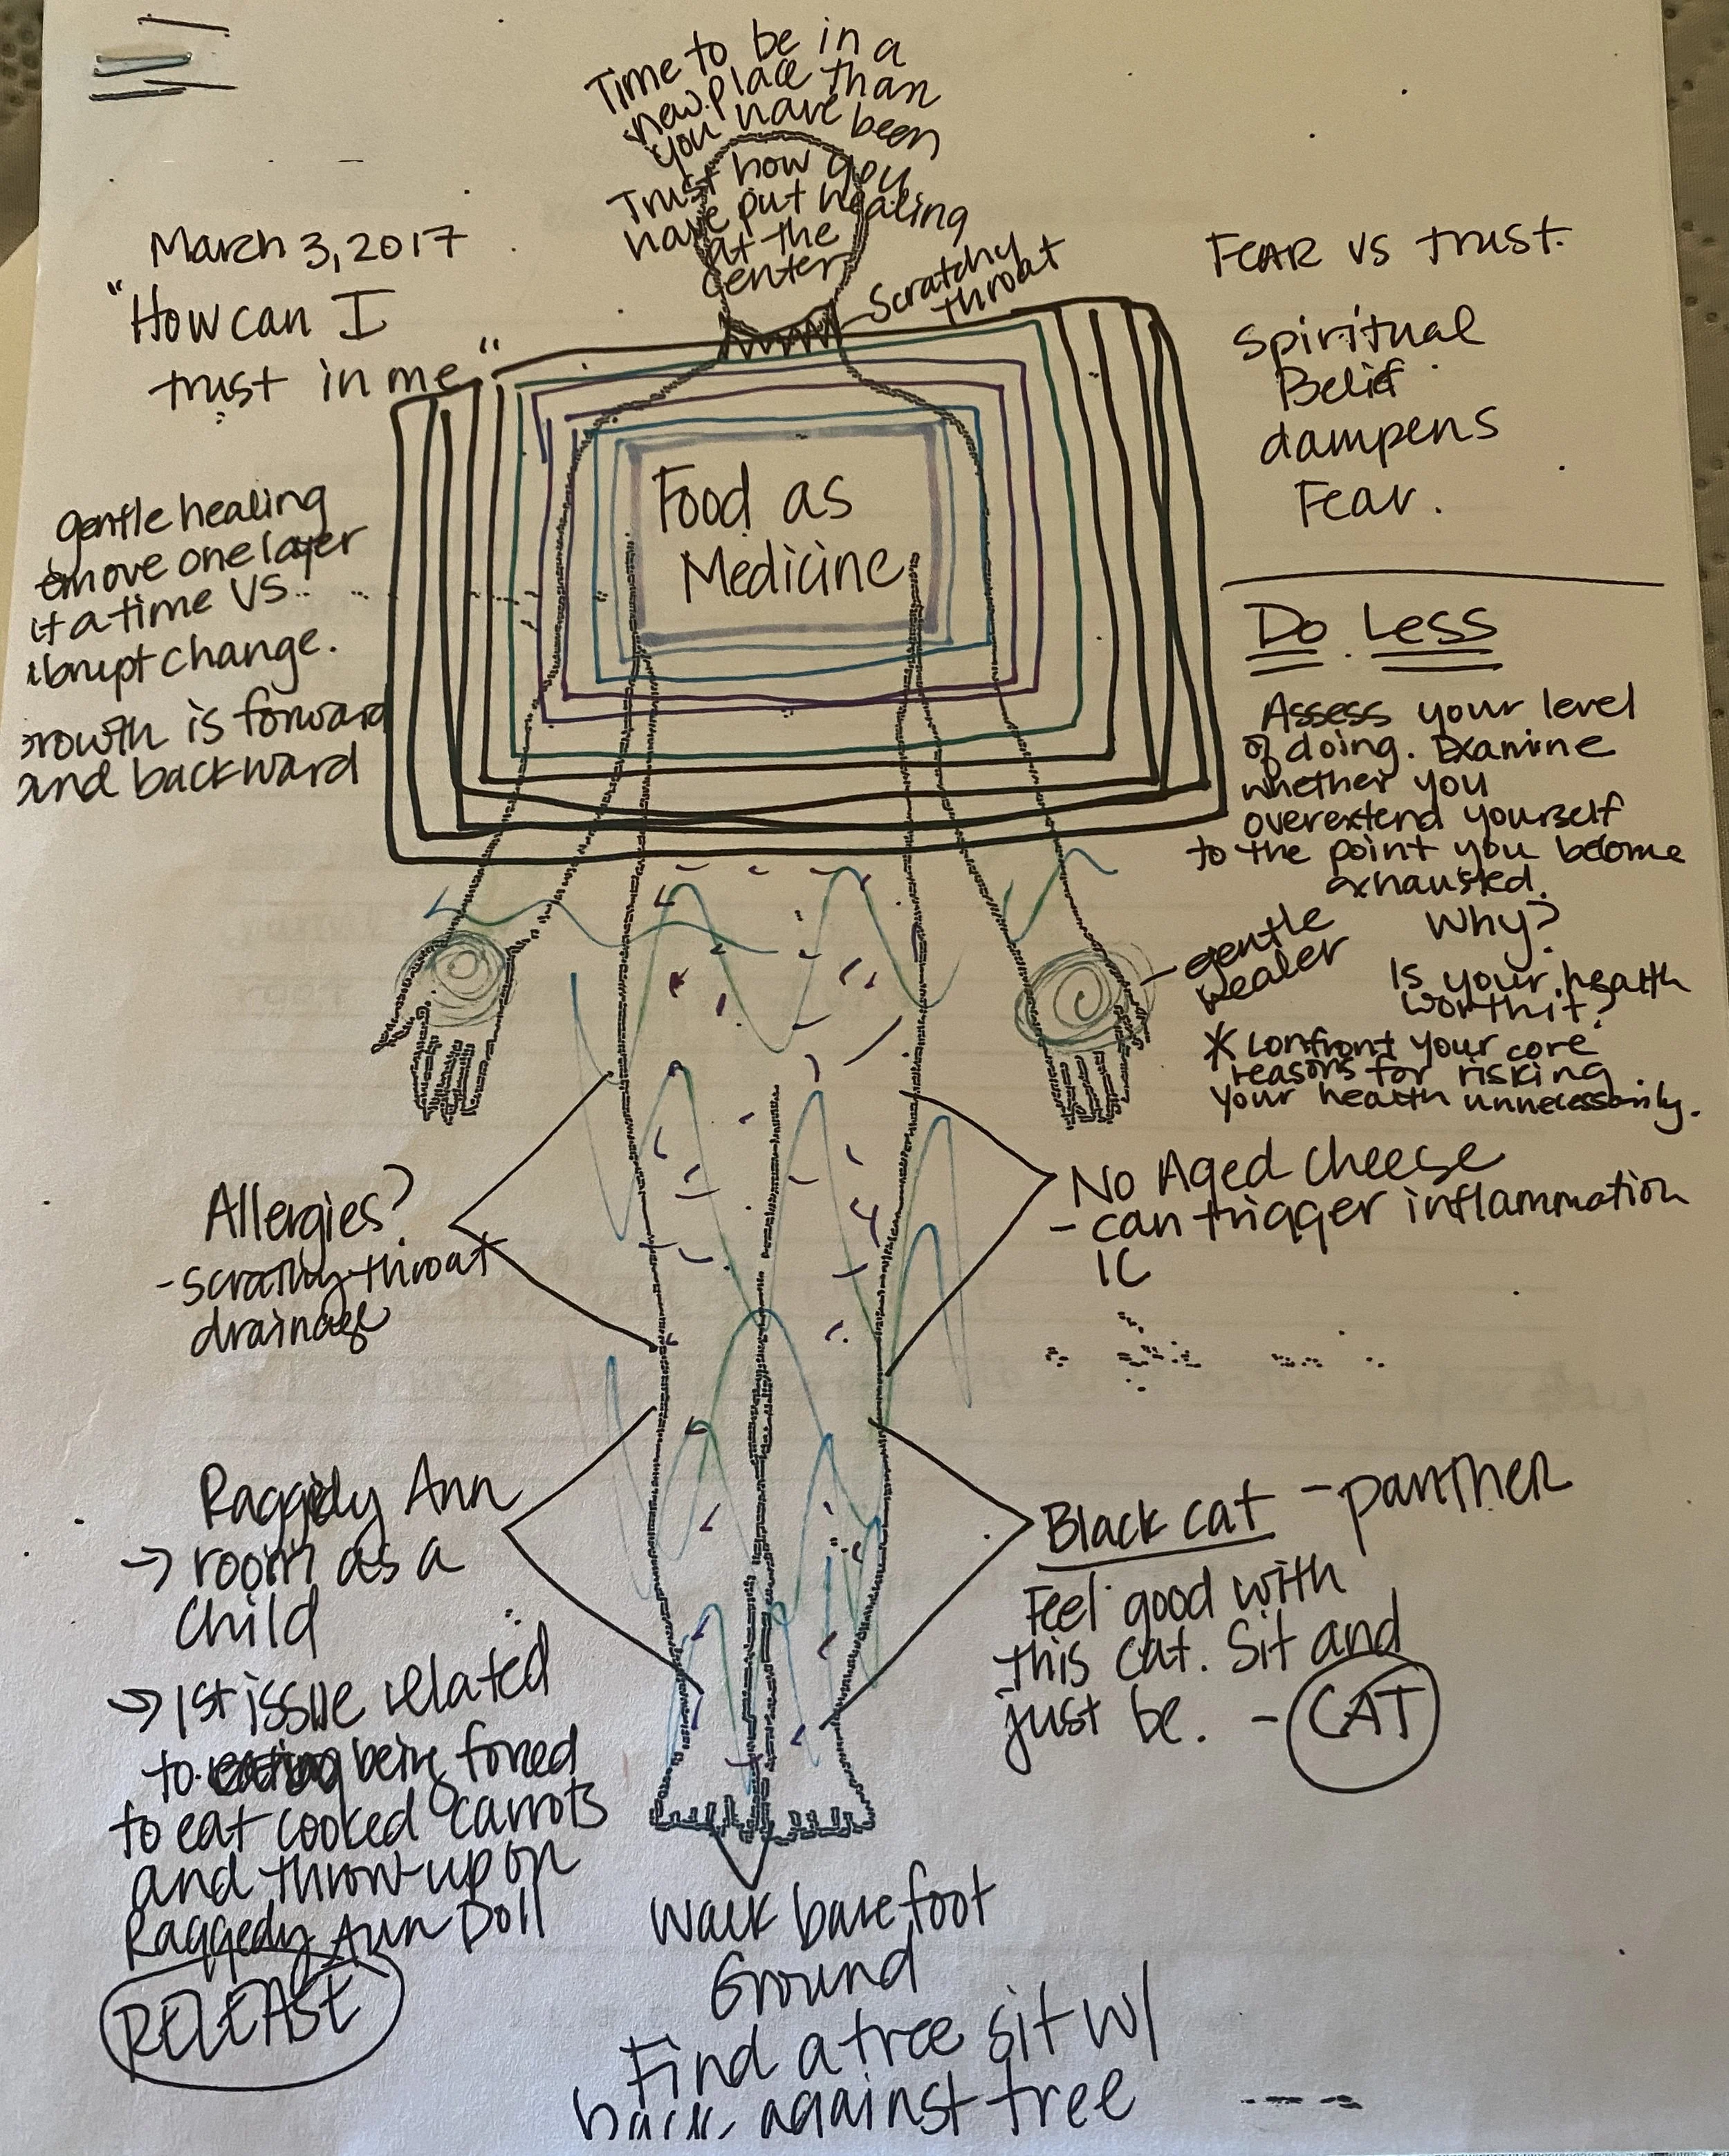 Time to be in a
new place than
you have been
Trust how you
have put healing
at the
center
Scratchy
throat
March 3, 2017
"How can I
trust in me"
Fear vs trust.
Spiritual
Belief
dampens
Fear.
Food as
Medicine
gentle healing
emove one layer
at a time vs.
abrupt change.
rowth is forward
and backward
Do Less
Assess your level
of doing. Examine
whether you
overextend yourself
to the point you become
exhausted.
Why?
gentle
healer
Is your health
worth it?
* Confront your core
reasons for risking
your health unnecessarily.
Allergies?
- Scratchy throat
drainage
No Aged cheese
- can trigger inflammation
IC
Raggedy Ann
→ room as a
child
→ 1st issue related
to being forced
to eat cooked carrots
and throw-up on
Raggedy Ann Doll
RELEASE
Black cat - panther
Feel good with
this cat. Sit and
just be. - CAT
Walk barefoot
Ground
Find a tree sit w/
back against tree